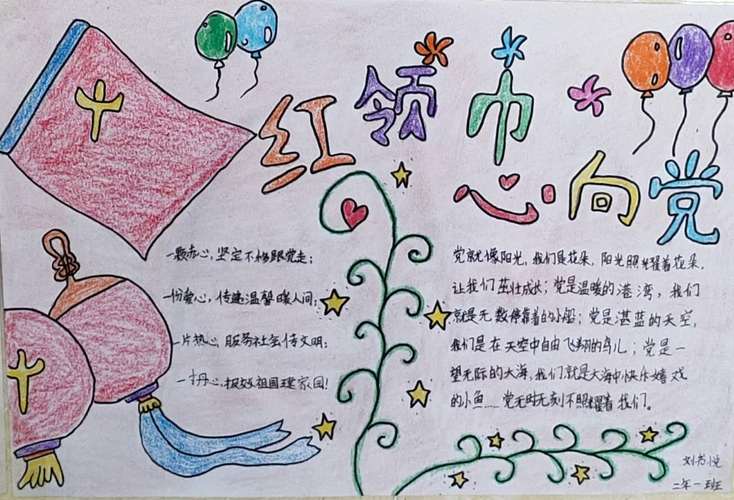 红领巾
心向党
一颗赤心,坚定不移跟党走;
一份爱心,传递温馨暖人间;
一片热心,服务社会传文明;
一丹心,报效祖国建家园!
党就像阳光,我们是花朵,阳光照耀着花朵,
让我们茁壮成长;党是温暖的港湾,我们
就是无数停靠着的小船;党是湛蓝的天空,
我们是在天空中自由飞翔的鸟儿;党是一
望无际的大海,我们就是大海中快乐嬉戏
的小鱼……党无时无刻不照耀着我们。
二年一班